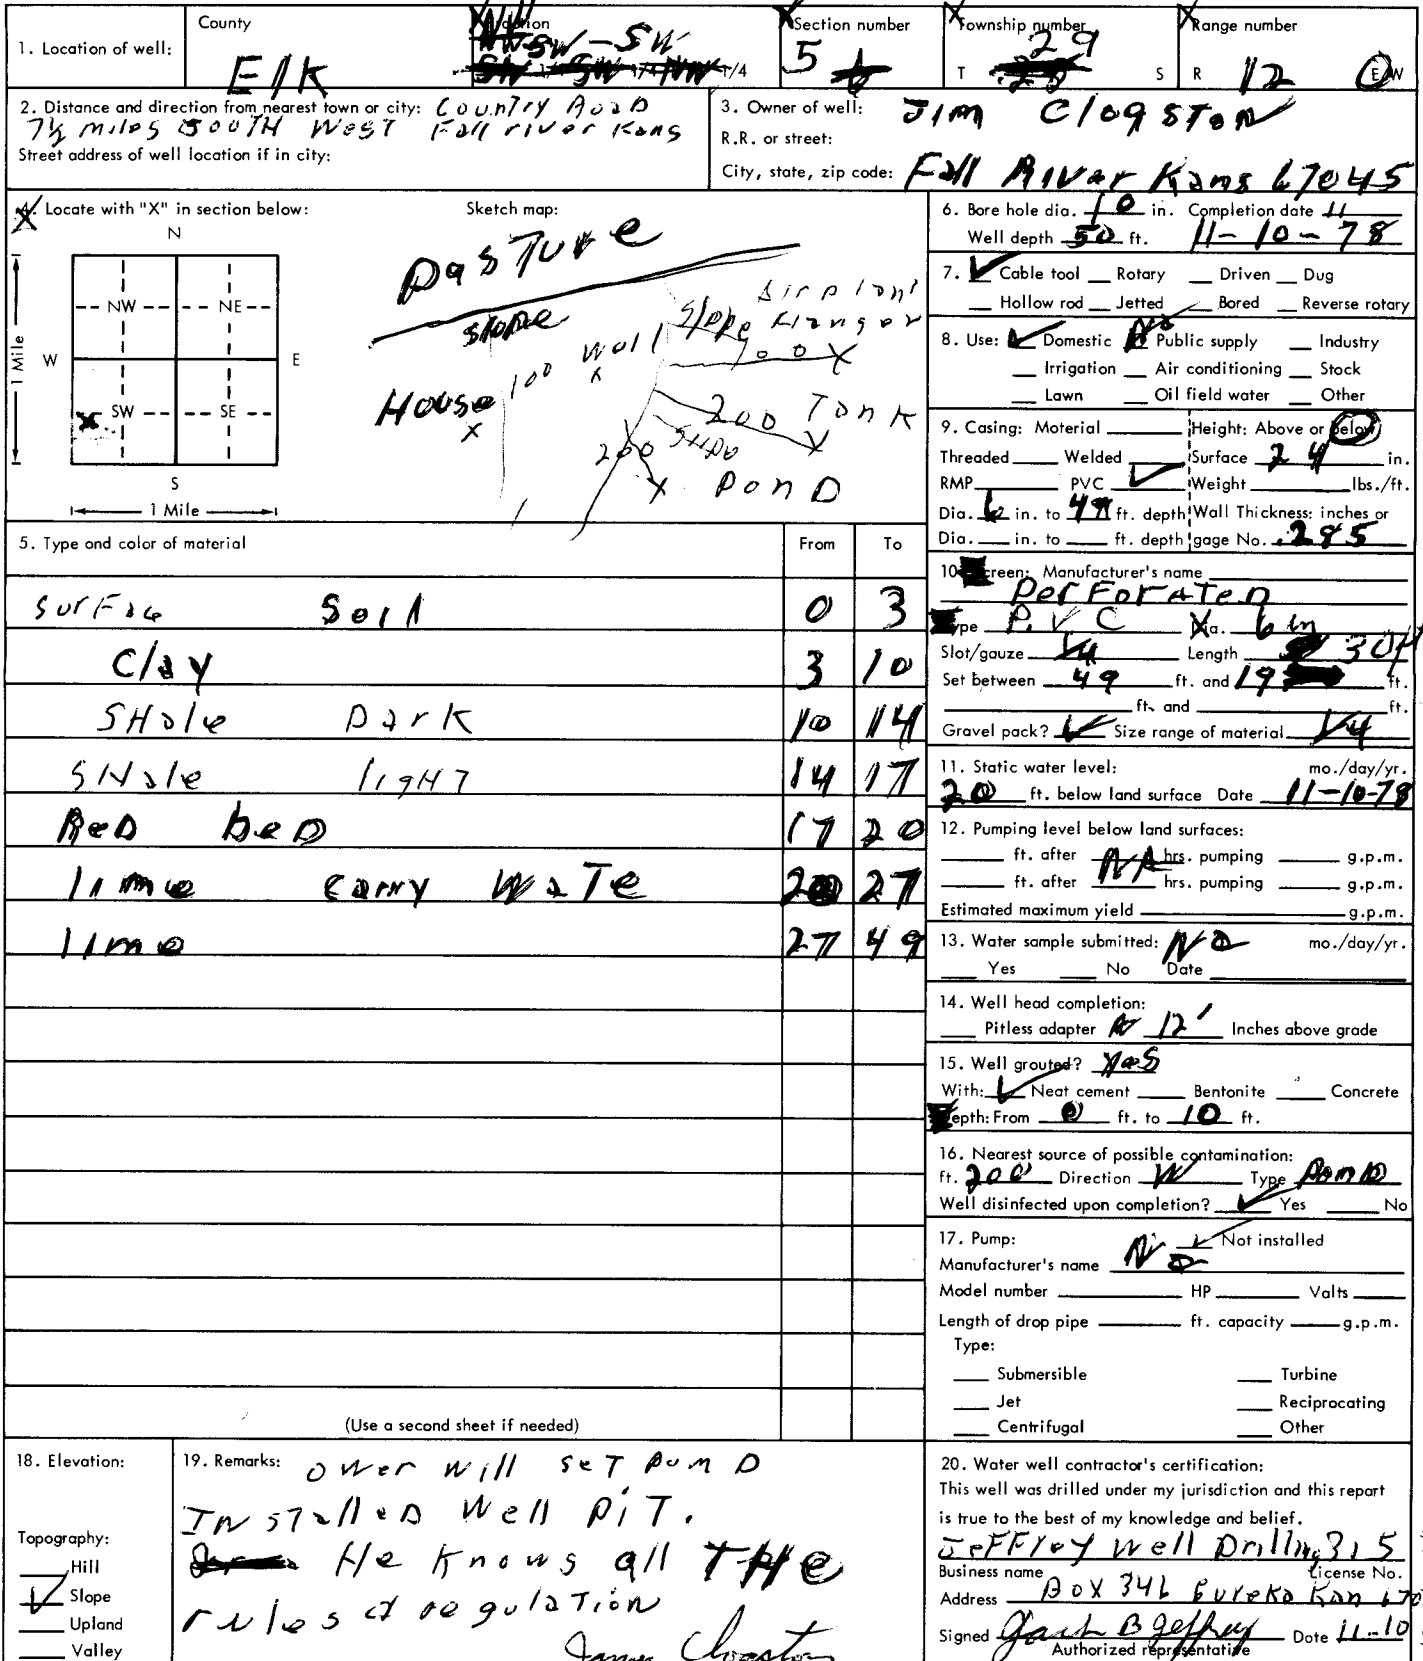 1. Location of well:
County
Elk
SW - SW
1/4
Section number
5
Township number
T 29 S
Range number
R 12 E/W
2. Distance and direction from nearest town or city: Country Road
7½ miles South West Fall river Kans
Street address of well location if in city:
3. Owner of well: Jim Clogston
R.R. or street:
City, state, zip code: Fall River Kans 67045
4. Locate with "X" in section below:
Sketch map:
N
NW NE
W E
SW SE
X
S
1 Mile
1 Mile
Pasture
Slope
Slope
Airplane
Hanger
100 Well
X
700 X
House
X
200 Tank
X
200
X Pond
5. Type and color of material From To
Surface Soil 0 3
Clay 3 10
SHale Dark 10 14
SHale ligHT 14 17
ReD beD 17 20
lime carry WaTe 20 27
lime 27 49
(Use a second sheet if needed)
6. Bore hole dia. 10 in. Completion date 11
Well depth 50 ft. 11-10-78
7. ✓ Cable tool Rotary Driven Dug
Hollow rod Jetted Bored Reverse rotary
8. Use: ✓ Domestic No Public supply Industry
Irrigation Air conditioning Stock
Lawn Oil field water Other
9. Casing: Material Height: Above or below
Threaded Welded Surface 24 in.
RMP PVC ✓ Weight lbs./ft.
Dia. 6 in. to 49 ft. depth Wall Thickness: inches or
Dia. in. to ft. depth gage No. .285
10. Screen: Manufacturer's name
PerForaTeD
Type P.V C Dia. 6 in
Slot/gauze 1/4 Length 30ft
Set between 49 ft. and 19 ft.
ft. and ft.
Gravel pack? ✓ Size range of material 1/4
11. Static water level: mo./day/yr.
20 ft. below land surface Date 11-10-78
12. Pumping level below land surfaces:
ft. after NA hrs. pumping g.p.m.
ft. after hrs. pumping g.p.m.
Estimated maximum yield g.p.m.
13. Water sample submitted: No mo./day/yr.
Yes No Date
14. Well head completion:
Pitless adapter 12' Inches above grade
15. Well grouted? Yes
With: ✓ Neat cement Bentonite Concrete
Depth: From 0 ft. to 10 ft.
16. Nearest source of possible contamination:
ft. 200 Direction W Type PonD
Well disinfected upon completion? ✓ Yes No
17. Pump: ✓ Not installed
Manufacturer's name No
Model number HP Valts
Length of drop pipe ft. capacity g.p.m.
Type:
Submersible Turbine
Jet Reciprocating
Centrifugal Other
18. Elevation:
Topography:
Hill
✓ Slope
Upland
Valley
19. Remarks: Ower will seT pumD
InsTalleD Well piT.
He knows all THe
rules & regulaTion
James Clogston
20. Water well contractor's certification:
This well was drilled under my jurisdiction and this report
is true to the best of my knowledge and belief.
JeFFrey Well Drilling 315
Business name License No.
Address Box 346 Eureka Kan 670
Signed B Jeffrey Date 11-10
Authorized representative